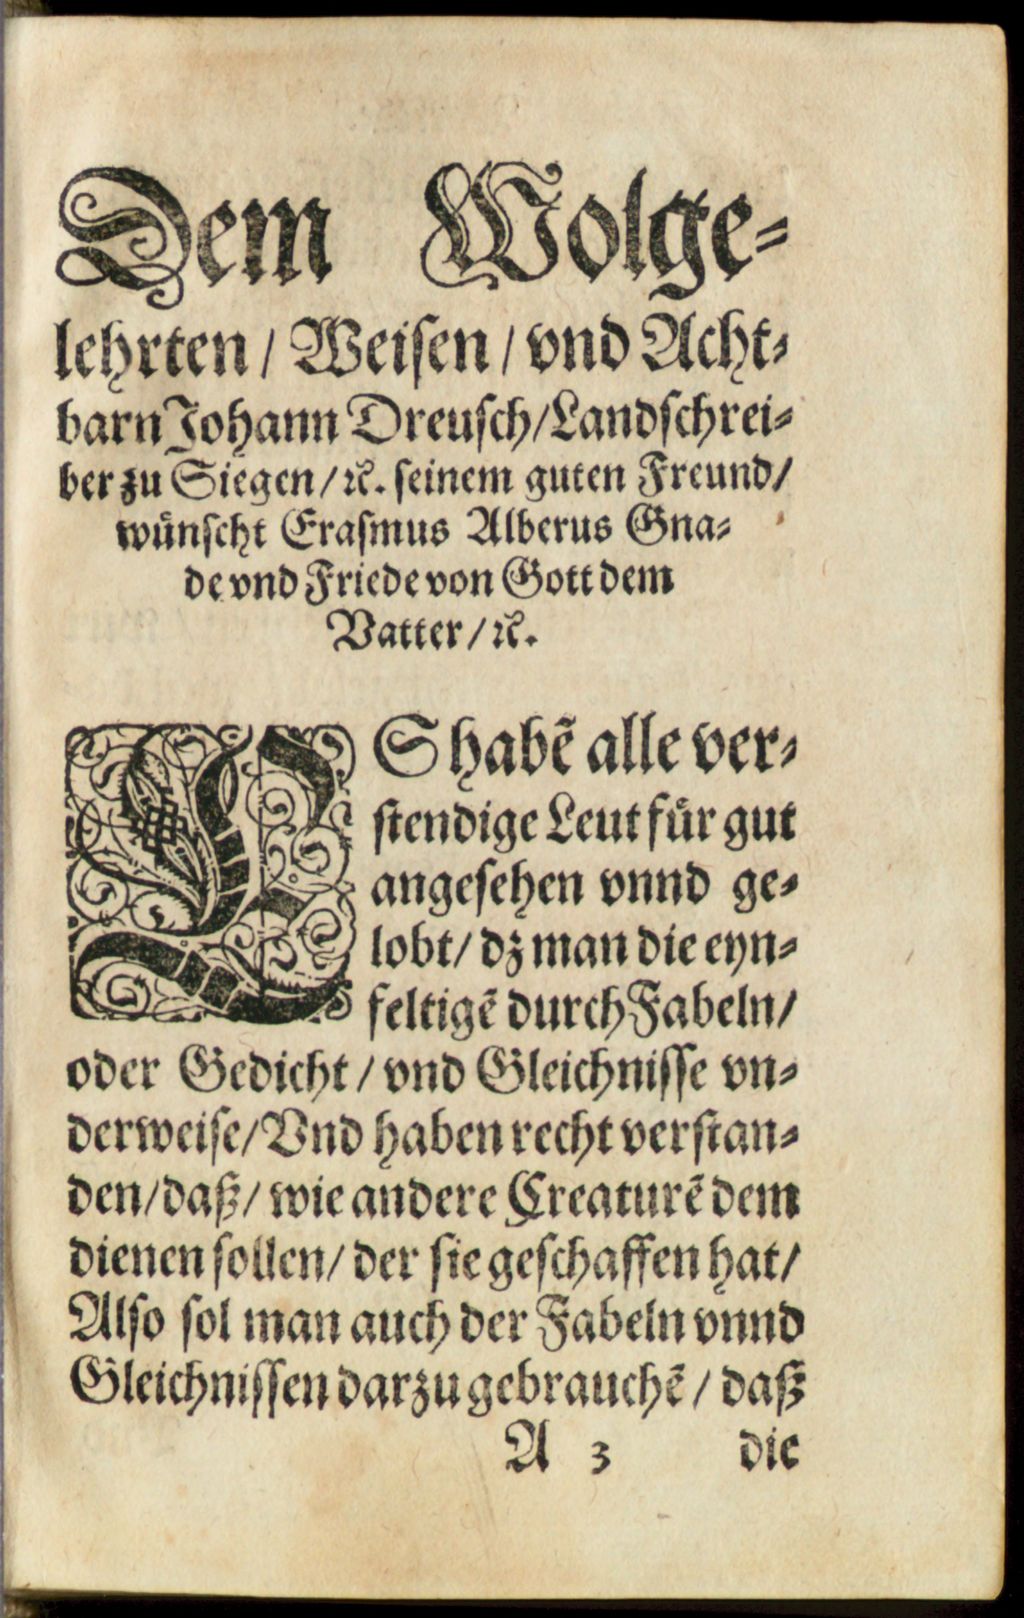 Dem Wolge⸗
lehrten / Weiſen / vnd Acht⸗
barn Johann Dreuſch / Landſchrei⸗
ber zu Siegen / ꝛc. ſeinem guten Freund /
wuͤnſcht Eraſmus Alberus Gna⸗
de vnd Friede von Gott dem
Vatter / ꝛc.
ES habẽ alle ver⸗
ſtendige Leut fuͤr gut
angeſehen vnnd ge⸗
lobt / dz man die eyn⸗
feltigẽ durch Fabeln /
oder Gedicht / vnd Gleichniſſe vn⸗
derweiſe / Vnd haben recht verſtan⸗
den / daß / wie andere Creaturẽ dem
dienen ſollen / der ſie geſchaffen hat /
Alſo ſol man auch der Fabeln vnnd
Gleichniſſen darzu gebrauchẽ / daß
A 3 die